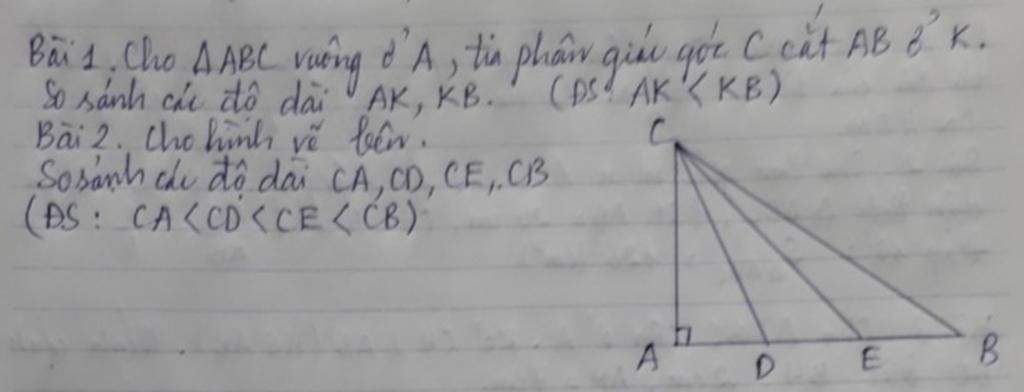 Bài 1. Cho ΔABC vuông ở A, tia phân giác góc C cắt AB ở K.
So sánh các độ dài AK, KB. (ĐS: AK < KB)
Bài 2. Cho hình vẽ bên.
So sánh các độ dài CA, CD, CE, CB
(ĐS: CA < CD < CE < CB)
C
A D E B